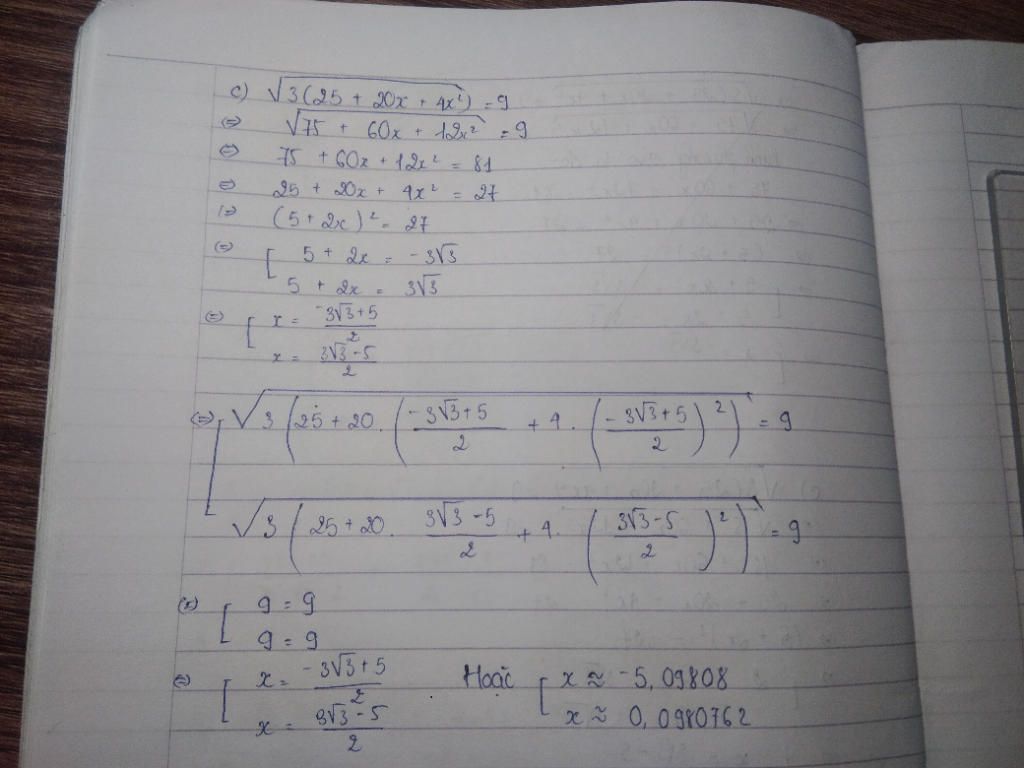 c) √3(25 + 20x + 4x²) = 9
(=) √75 + 60x + 12x² = 9
(=) 75 + 60x + 12x² = 81
(=) 25 + 20x + 4x² = 27
(=) (5 + 2x)² = 27
(=) [ 5 + 2x = -3√3
5 + 2x = 3√3
(=) [ x = -3√3+5/2
x = 3√3-5/2
(=) [ √3(25 + 20.(-3√3+5/2 + 4.(-3√3+5/2)²) = 9
√3(25 + 20. 3√3-5/2 + 4.(3√3-5/2)²) = 9
(=) [ 9 = 9
9 = 9
(=) [ x = -3√3+5/2 Hoặc [ x ≈ -5,09808
x = 3√3-5/2 x ≈ 0,0980762